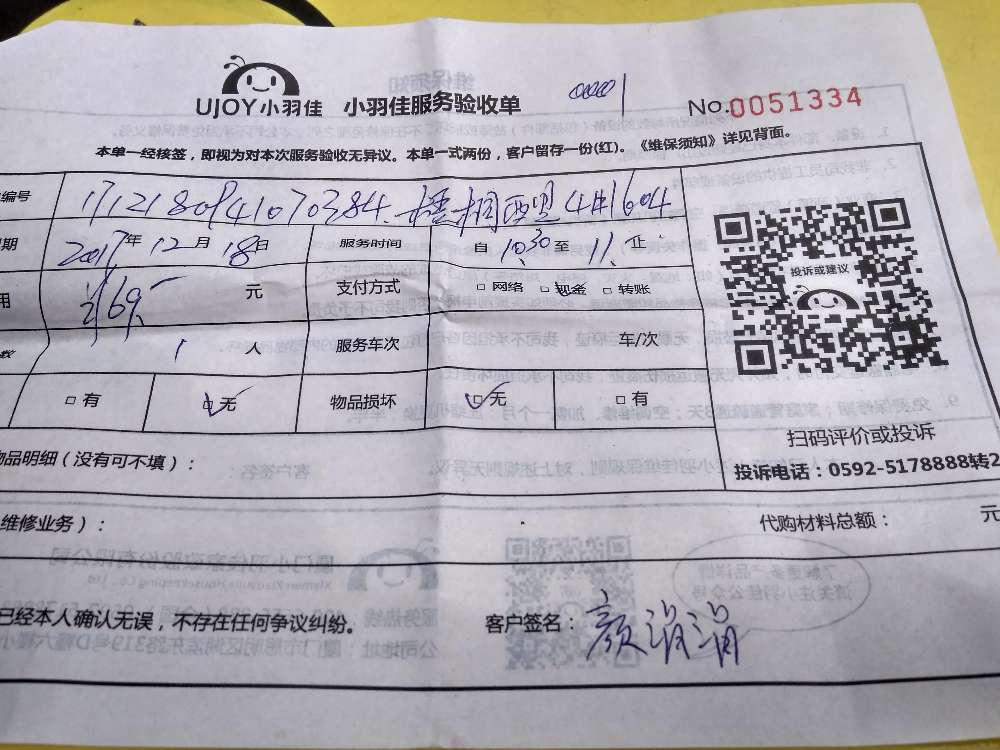 UJOY小羽佳 小羽佳服务验收单 No.0051334
本单一经核签，即视为对本次服务验收无异议。本单一式两份，客户留存一份(红)。《维保须知》详见背面。
编号
期 2017年12月18日 服务时间 自10.30至11.止
用 169 元 支付方式 □网络 □现金 □转账
数 1 人 服务车次 车/次
□有 □无 物品损坏 □无 □有
投诉或建议
扫码评价或投诉
投诉电话：0592-5178888转2
物品明细（没有可不填）：
维修业务）： 代购材料总额： 元
已经本人确认无误，不存在任何争议纠纷。 客户签名：颜涓涓